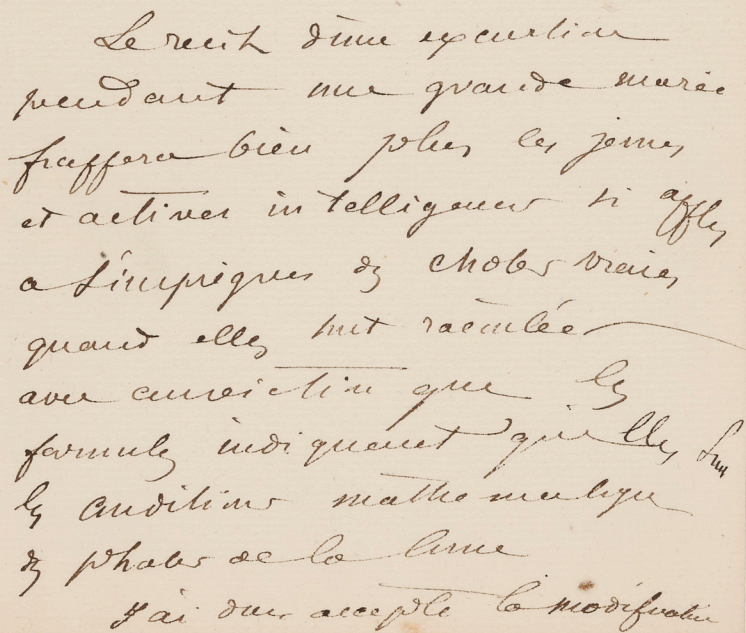 Le recit d'une excursion
pendant une grande marée
frappera bien plus les jeunes
et actives intelligences si aptes
a s'impregner des choses vraies
quand elles sont racontées
avec conviction que les
formules indiquant qu'elles sont
les conditions mathematiques
des phases de la lune
J'ai donc accepté la modification